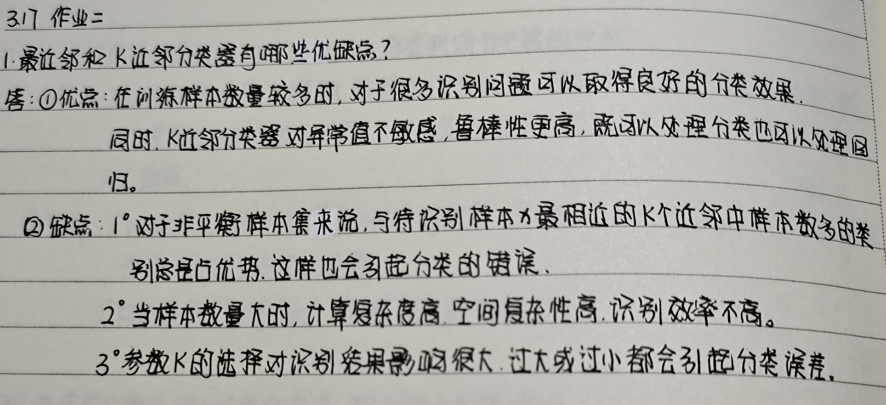 3.17 作业二
1.最近邻和K近邻分类器有哪些优缺点?
答:①优点:在训练样本数量较多时,对于很多识别问题可以取得良好的分类效果.
同时,K近邻分类器对异常值不敏感,鲁棒性更高,既可以处理分类也可以处理回
归。
②缺点:1°对于非平衡样本集来说,与待识别样本x最相近的K个近邻中样本数多的类
别总是占优势.这样也会引起分类的错误、
2°当样本数量大时,计算复杂度高.空间复杂性高.识别效率不高。
3°参数K的选择对识别结果影响很大.过大或过小都会引起分类误差.